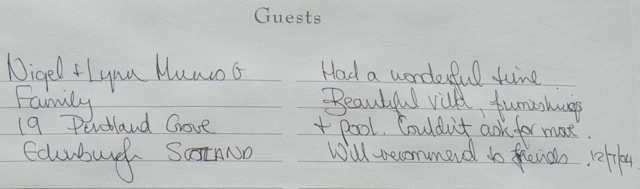 Guests
Nigel & Lynn Munro &
Family
19 Pentland Grove
Edinburgh SCOTLAND
Had a wonderful time
Beautiful villa, furnishings
+ pool. Couldn't ask for more.
Will recommend to friends. 12/7/04